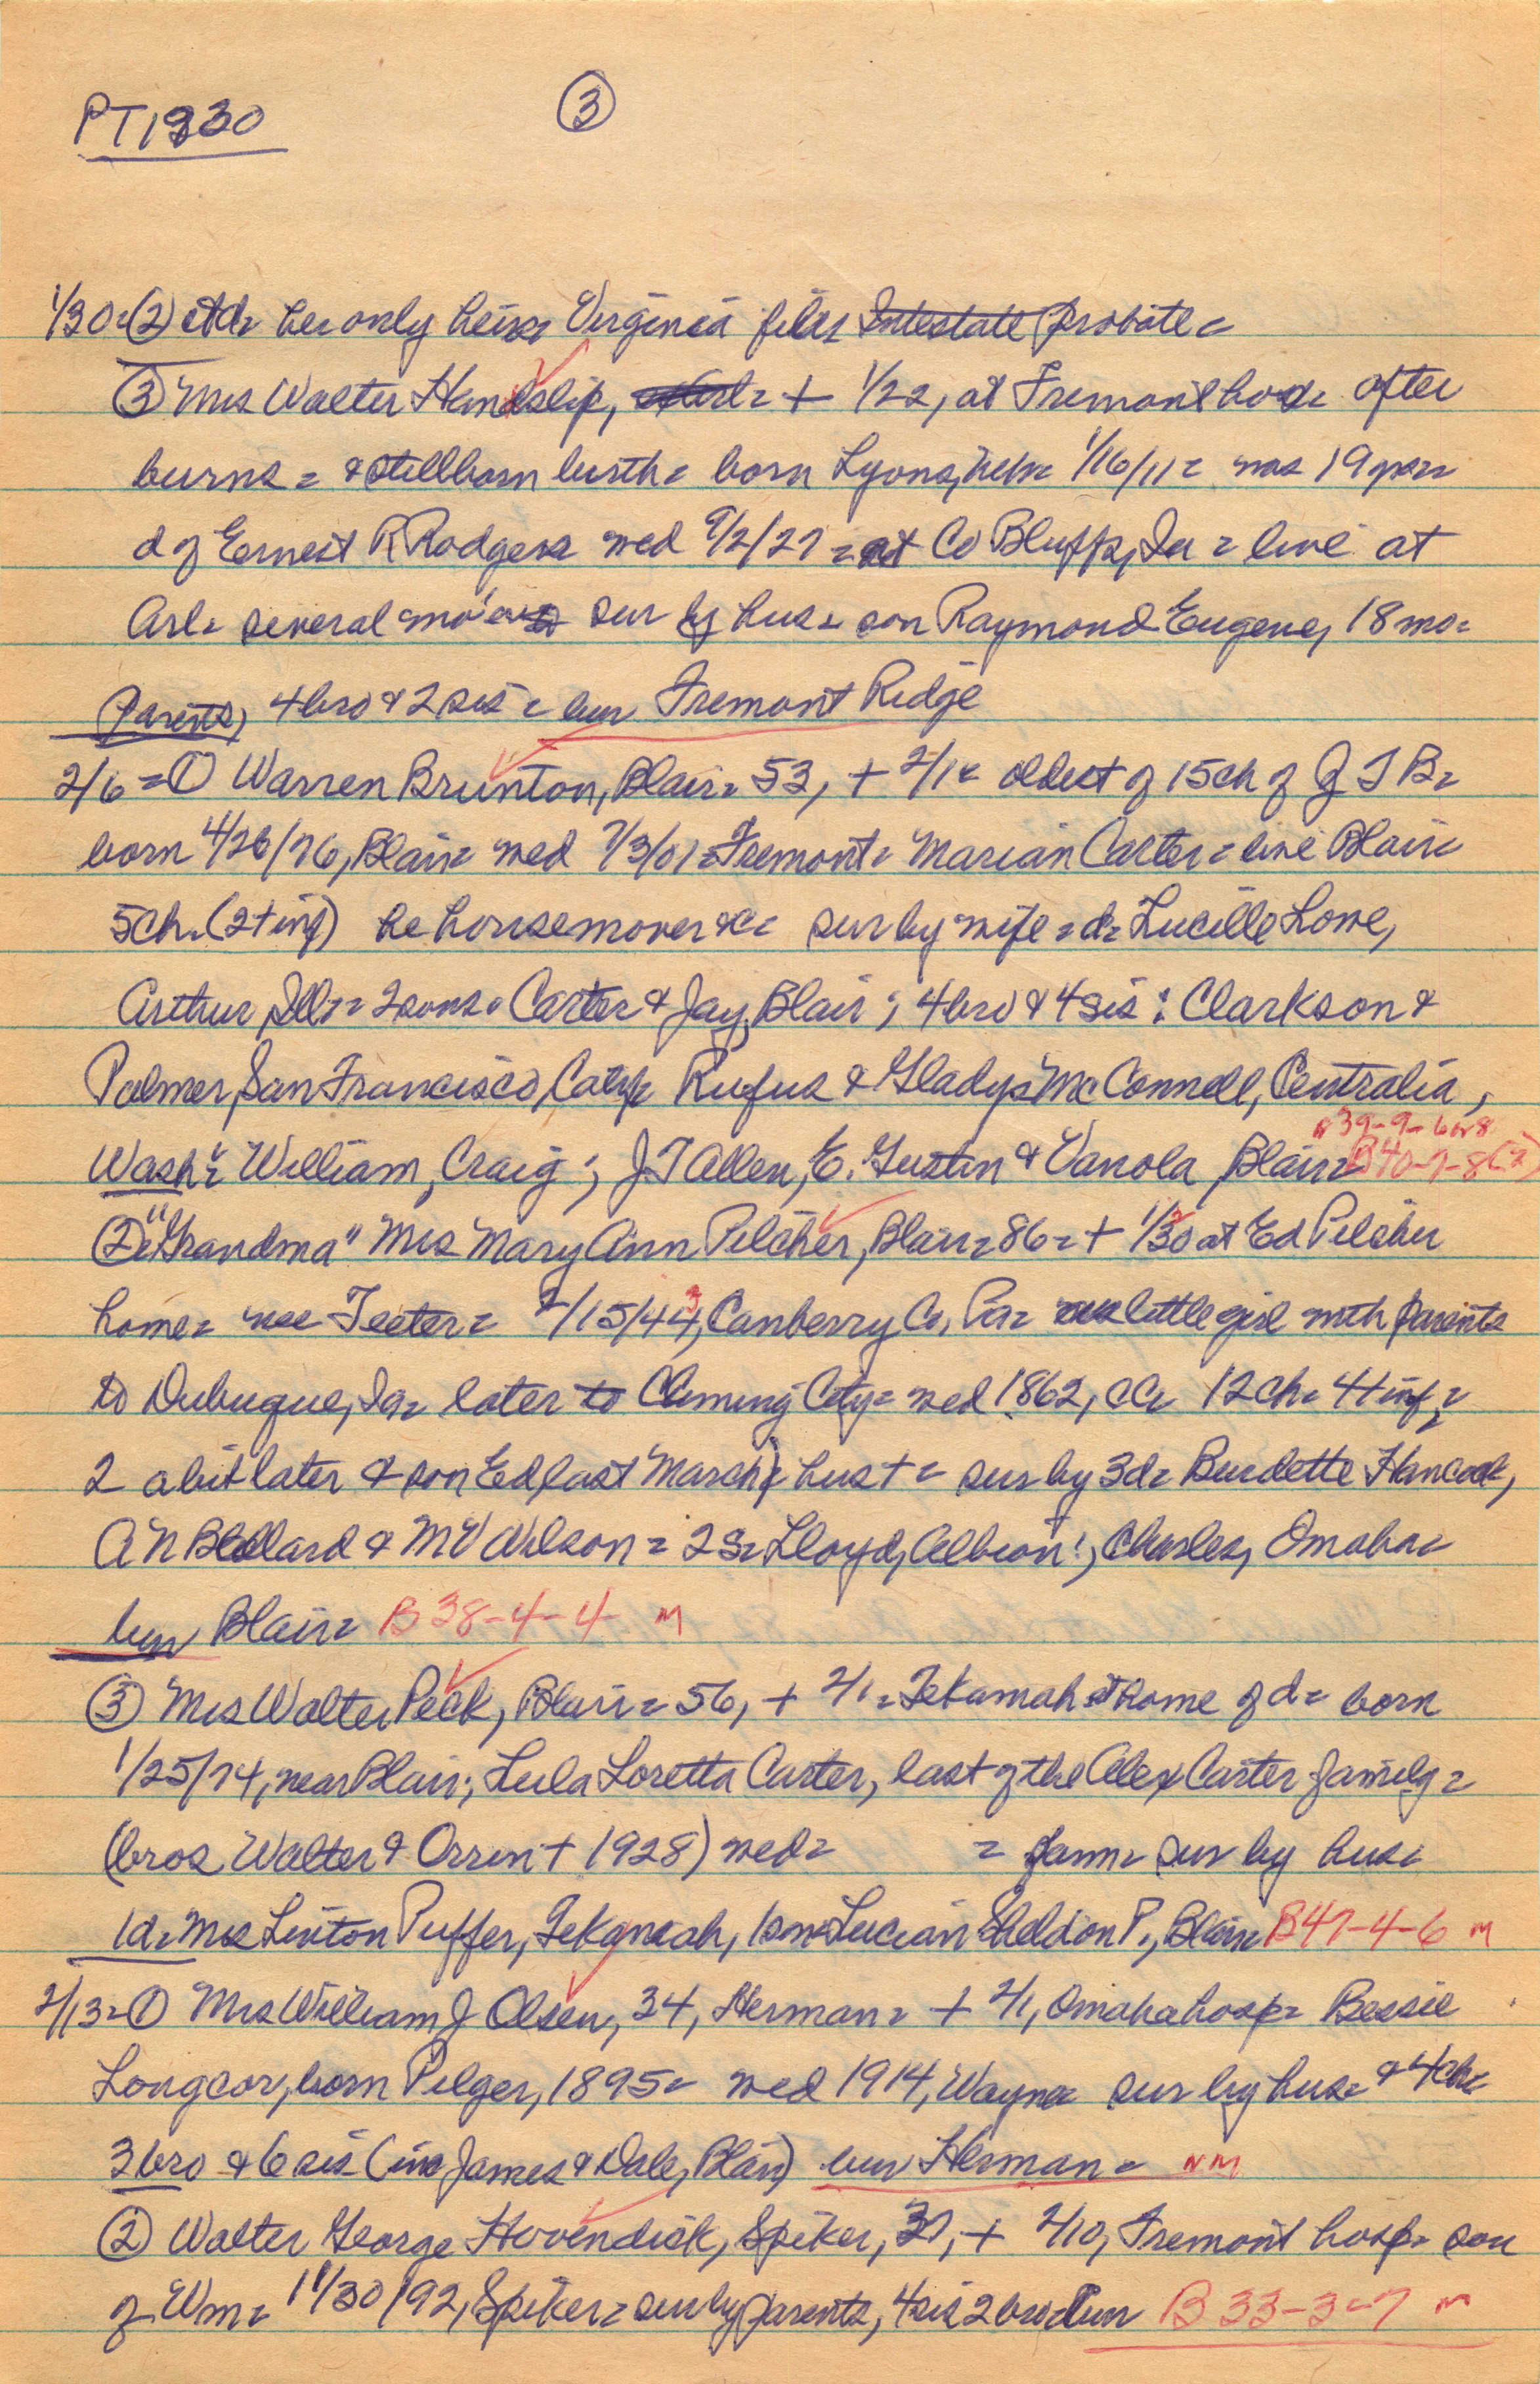 PT1930
③
1/30=② std= her only heirs Virginia files Intestate probate=
③ Mrs Walter Handslip, + 1/22, at Fremont hos= after
burns = & stillborn birth= born Lyons, Neb= 1/16/11= was 19 yrs=
d of Ernest R Rodgers wed 9/2/27 = at Co Bluffs, Ia = live at
Arl= several mo's sur by hus= son Raymond Eugene, 18 mo=
Parents, 4 bro & 2 sis = bur Fremont Ridge
2/6 = ① Warren Brunton, Blair= 53, + 2/1= oldest of 15 ch of J T B=
born 4/26/76, Blair= wed 7/3/01= Fremont= Marian Carter= live Blair=
5 ch. (2 + inf) he housemover &c= sur by wife = d= Lucille Lowe,
Arthur, Ill= = 2 sons= Carter & Jay, Blair; 4 bro & 4 sis: Clarkson &
Palmer, San Francisco, Calif= Rufus & Gladys McConnell, Centralia,
39-9-6or8
Wash= William, Craig; J T Allen, E. Gustin & Vanola, Blair= B40-7-8(2)
② "Grandma" Mrs Mary Ann Pilcher, Blair= 86= + 1/30 at Ed Pilcher
home= nee Teeter= 2/15/43, Canberry Co, Pa= little girl with parents
to Dubuque, Ia= later to Cuming City= wed 1862, CC= 12 ch= 4 + inf=
2 a bit later & son Ed last March) hus + = sur by 3 d= Burdette Hancock,
A N Ballard & M V Wilson = 2 s= Lloyd, Albion; Charles, Omaha=
bur Blair= B 38-4-4 M
③ Mrs Walter Peck, Blair= 56, + 2/1= Tekamah at home of d= born
1/25/74, near Blair; Lula Loretta Carter, last of the Alex Carter family=
(bros Walter & Orrin + 1928) wed= = farm= sur by hus=
1 d= Mrs Linton Puffer, Tekamah, 1 son Lucian Sheldon P., Blair= B47-4-6 M
2/13=① Mrs William J Olsen, 34, Herman= + 2/1, Omaha hosp= Bessie
Longcor, born Pilger, 1895= wed 1914, Wayne= sur by hus= & 4 ch=
3 bro & 6 sis (inc James & Dale, Blair) bur Herman= NM
② Walter George Hovendick, Spiker, 37, + 2/10, Fremont hosp= son
of Wm= 11/30/92, Spiker= sur by parents, 4 sis 2 bro= bur B 33-3-7 M